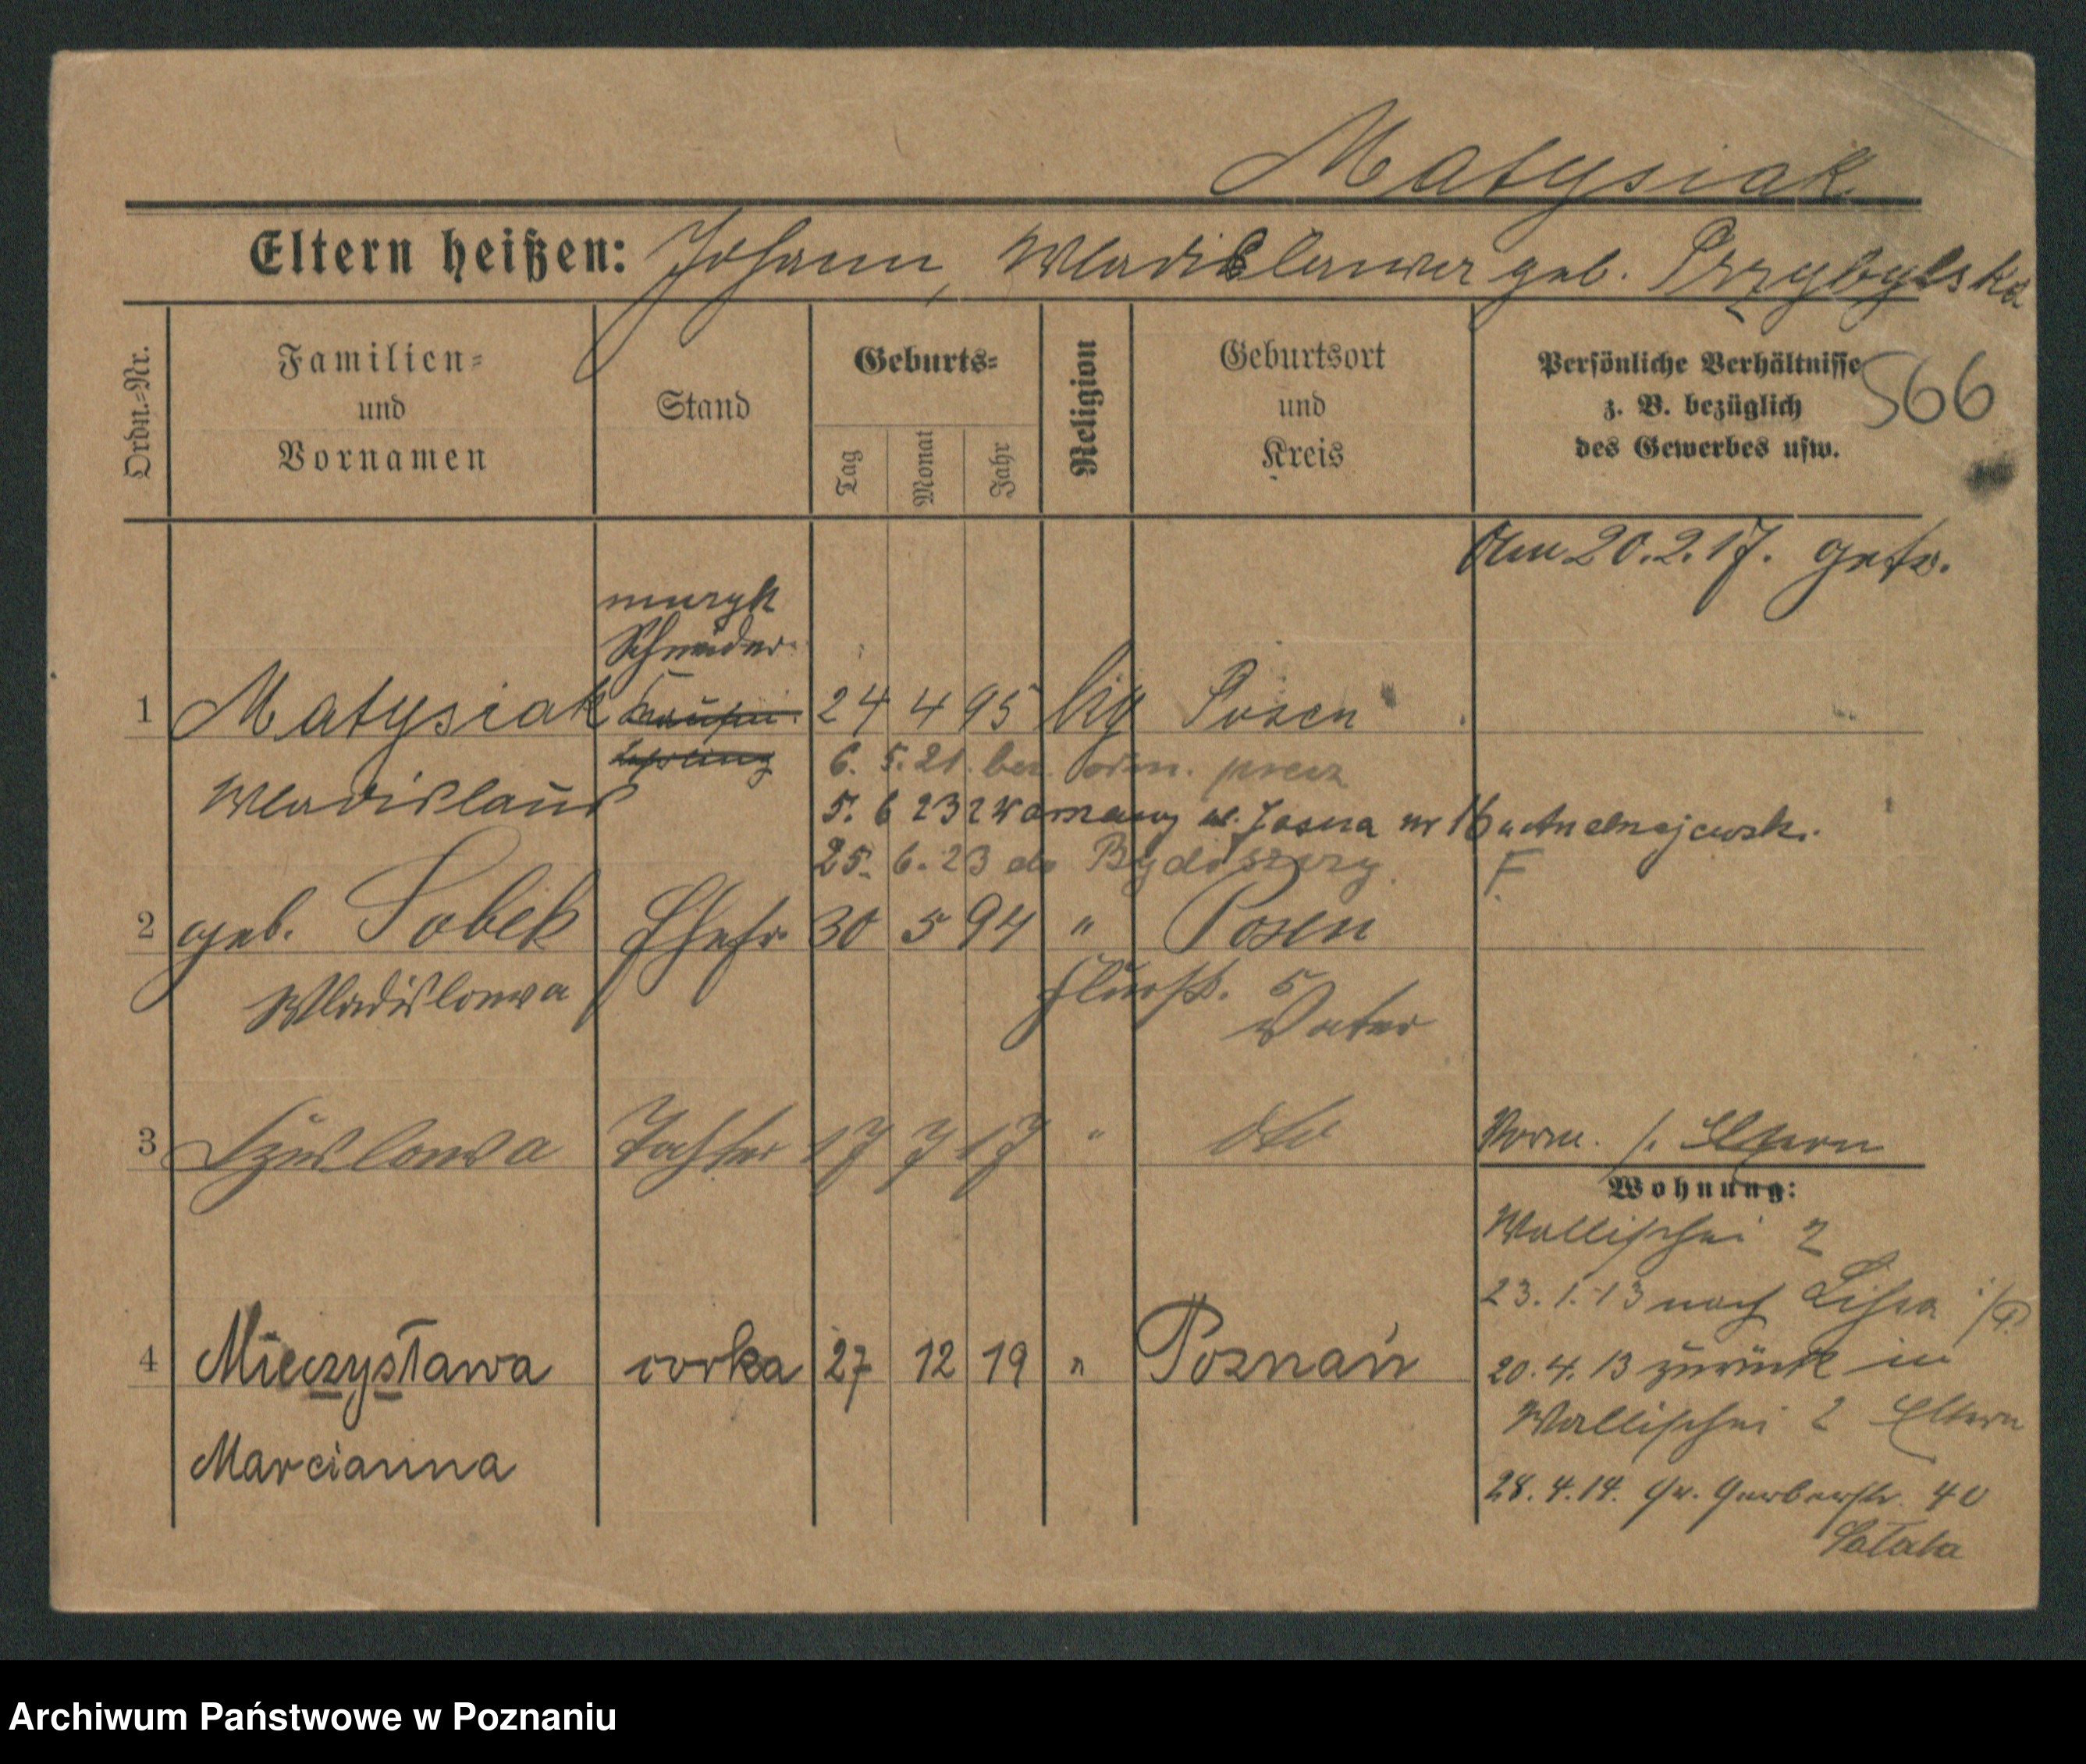 Matysiak
Eltern heißen: Johann, Wladislawa geb. Przybylska
Ordn.-Nr.
Familien- und Vornamen
Stand
Geburts-
Tag
Monat
Jahr
Religion
Geburtsort und Kreis
Persönliche Verhältnisse
z. B. bezüglich
des Gewerbes usw.
566
Am 20.2.17. getr.
muzyk
Schneider
1 Matysiak 24 4 95 Posen
Lehrling
6. 5. 21.
Wladislaus
5. 6 23 ul. Jasna nr 16
25. 6. 23 do Bydgoszczy
F
2 geb. Sobek Ehefr. 30 5 94 " Posen
Wladislawa
5
Vater
3 Tochter 17 7 17 " dto
Vorm. s. Eltern
Wohnung:
Wallischei 2
23. 1. 13 nach Lissa i/P.
4 Mieczysława corka 27 12 19 " Poznań
20. 4. 13 zurück in
Wallischei 2 Eltern
Marcianna
28. 4. 14. Gr. Gerberstr. 40
Archiwum Państwowe w Poznaniu